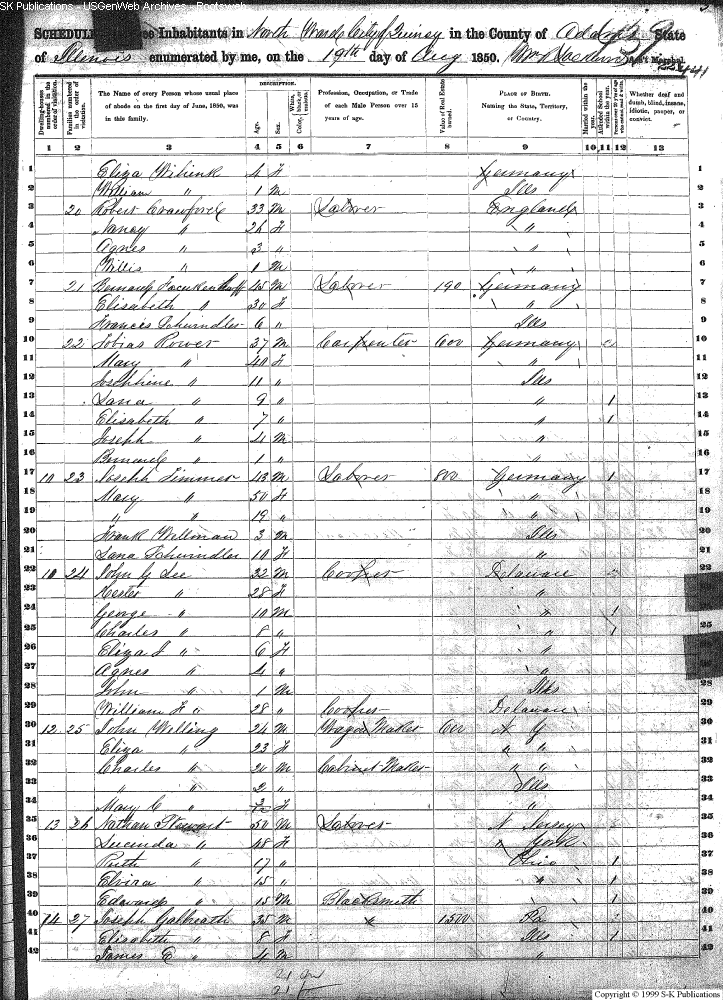 SK Publications - USGenWeb Archives - Rootsweb
SCHEDULE Free Inhabitants in North Ward City of Quincy in the County of Adams State
of Illinois enumerated by me, on the 19th day of Aug 1850. Ass't Marshal.
Dwelling-houses numbered in the order of visitation.
Families numbered in the order of visitation.
The Name of every Person whose usual place of abode on the first day of June, 1850, was in this family.
DESCRIPTION.
Age.
Sex.
Color, White, black, or mulatto.
Profession, Occupation, or Trade of each Male Person over 15 years of age.
Value of Real Estate owned.
PLACE OF BIRTH. Naming the State, Territory, or Country.
Married within the year.
Attended School within the year.
Persons over 20 y'rs of age who cannot read & write.
Whether deaf and dumb, blind, insane, idiotic, pauper, or convict.
1 2 3 4 5 6 7 8 9 10 11 12 13
1 Eliza 4 F Germany 1
2 William " 1 M Ills 2
3 20 Robert Crawford 33 M Labover England 3
4 Nancy " 26 F " 4
5 Agnes " 3 " " 5
6 Willis " 1 M " 6
7 21 45 M Labover 190 Germany 7
8 Elisabeth " 30 F " 8
9 Frances Schwindler 6 " Ills 9
10 22 Tobias Rower 37 M Carpenter 600 Germany 10
11 Mary " 40 F " 11
12 Josephine " 11 " Ills 12
13 Lana " 9 " " 1 13
14 Elisabeth " 7 " " 1 14
15 Joseph " 4 M " 15
16 " 1 " " 16
17 10 23 Joseph Timmer 43 M Labover 800 Germany 1 17
18 Mary " 50 F " 18
19 " " 19 " " 19
20 Frank Wellman 3 M Ills 20
21 Lana Schwindler 10 F " 21
22 10 24 John G Lee 32 M Cooper Delaware 22
23 Hester " 28 F " 23
24 George " 10 M " 1
25 Charles " 8 " " 1 25
26 Eliza J " 6 F "
27 Agnes " 4 " "
28 John " 1 M Ills 28
29 William H " 28 " Cooper Delaware 29
30 12 25 John Welling 24 M Wagon Maker 600 N Y 30
31 Eliza " 23 F " " 31
32 Charles " 20 M Cabinet Maker " " 32
33 " " 2 " Ills 33
34 Mary C " F " 34
35 13 26 Nathan Stewart 50 M Labover N Jersey 35
36 Lucinda " 48 F N York 36
37 Ruth " 17 " Ohio 1 37
38 Elvira " 15 " " 1 38
39 Edward " 15 M Blacksmith " 1 39
40 14 27 Joseph Galbreath 35 M 1500 Pa 40
41 Elizabeth " 8 F Ills 1 41
42 James E " 4 M " 42
Copyright © 1999 S-K Publications